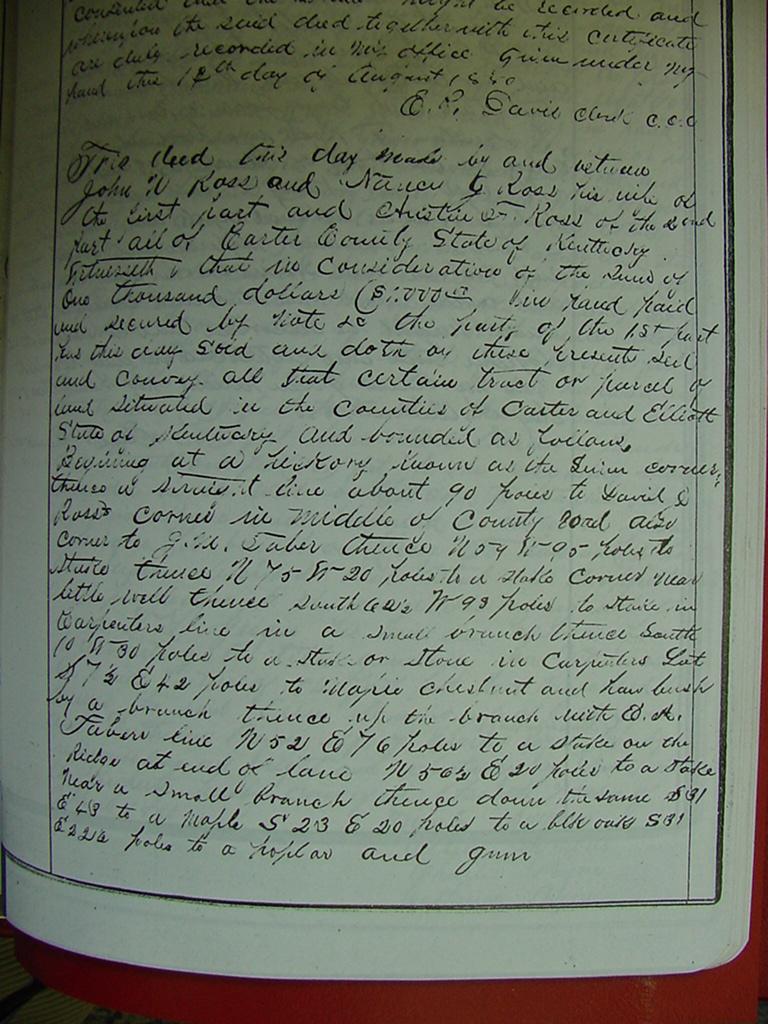 consented that the same might be recorded and
whereupon the said deed together with this certificate
are duly recorded in my office Given under my
hand this 18th day of August 1880
E. P. Davis clerk C.C.C
This deed this day made by and between
John W Ross and Nancy J Ross his wife of
the first part and Christia F. Ross of the second
part all of Carter County State of Kentucky
Witnesseth that in consideration of the sum of
One thousand dollars ($1,000 in hand paid
and secured by note &c the party of the 1st part
has this day Sold and doth by these presents sell
and convey all that certain tract or parcel of
land situated in the Counties of Carter and Elliott
State of Kentucky and bounded as follows,
Beginning at a hickory known as the corner,
thence a straight line about 90 poles to David
Ross's corner in middle of County road also
corner to G.W. Taber thence N 54 W 95 poles to
stake thence N 75 W 20 poles to a stake corner near
little well thence south 62½ W 93 poles to stake in
Carpenters line in a small branch thence South
10 W 30 poles to a stake or stone in Carpenters Lot
S 7½ E 42 poles to Maple chestnut and haw bush
by a branch thence up the branch with
Tabers line N 52 E 76 poles to a stake on the
Ridge at end of lane N 56½ E 20 poles to a stake
Near a small branch thence down the same S 31
E 43 to a Maple S 23 E 20 poles to a blk oak S 31
E 22½ poles to a poplar and gum